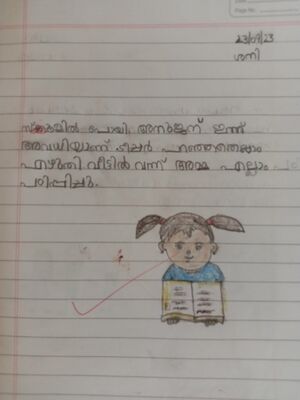 23/09/23
ശനി
സ്കൂളിൽ പോയി. അനർജന് ഇന്ന്
അവധിയാണ്. ടീച്ചർ പറഞ്ഞതെല്ലാം
എഴുതി വീട്ടിൽ വന്ന് അമ്മ എല്ലാം
പഠിപ്പിച്ചു.